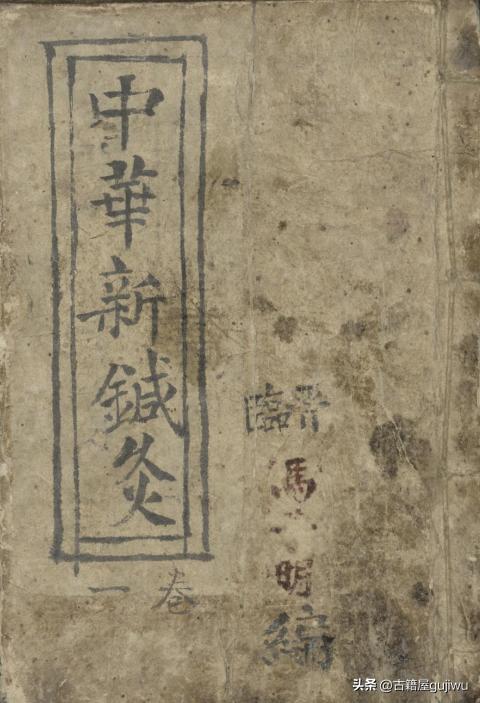 晋臨
馮明
編
中華新鍼灸
卷一
头条 @古籍屋gujiwu